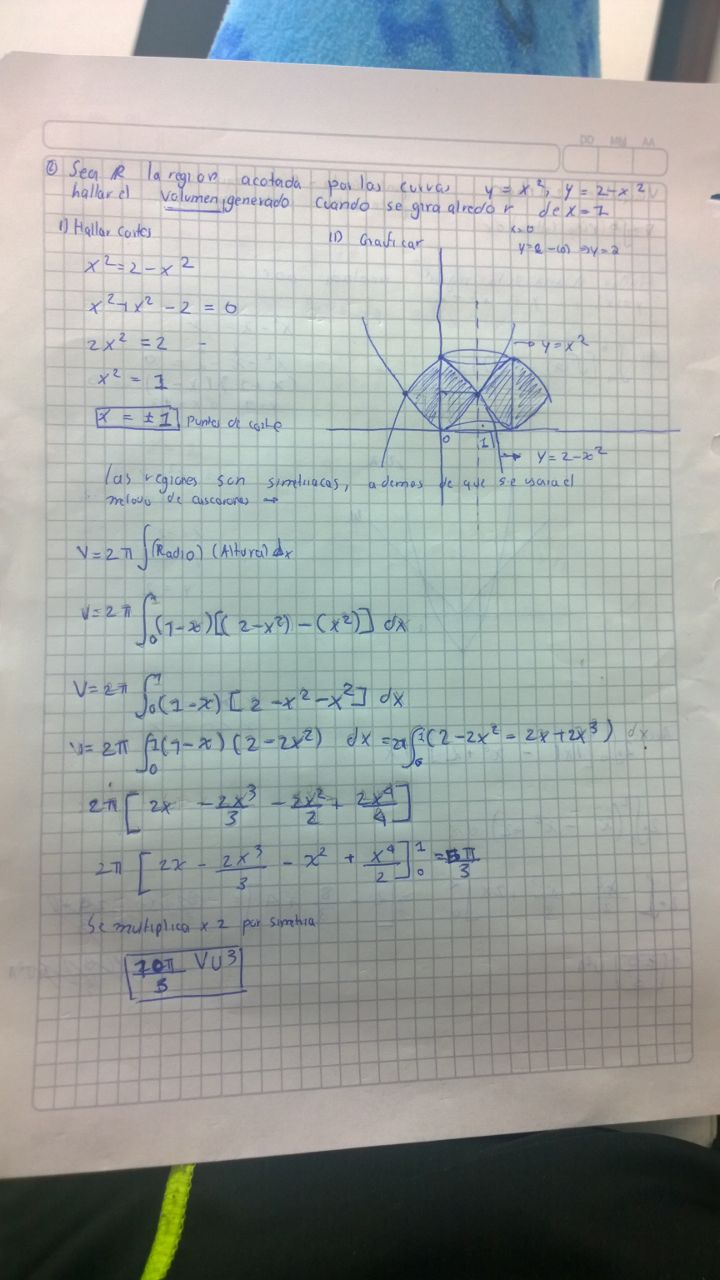 DD MM AA
② Sea R la region acotada por las curvas y = x², y = 2-x²
hallar el volumen, generado cuando se gira alrededor de x=1
I) Hallar cortes
II) Graficar
x=0
y=2-(0) ⇒ y=2
x² = 2-x²
x²+x²-2 = 0
2x² = 2
x² = 1
x = ±1 Puntos de corte
y=x²
0
1
y=2-x²
las regiones son simetricas, ademas de que se usara el
metodo de cascarones →
V=2π ∫(Radio) (Altura) dx
V=2π ∫₀¹(1-x)[(2-x²)-(x²)] dx
V=2π ∫₀¹(1-x)[2-x²-x²] dx
V=2π ∫₀¹(1-x)(2-2x²) dx = 2π∫₀¹(2-2x²-2x+2x³) dx
2π[2x - 2x³/3 - 2x²/2 + 2x⁴/4]
2π[2x - 2x³/3 - x² + x⁴/2]₀¹ = 5π/3
Se multiplica x 2 por simetria
10π/3 VU³